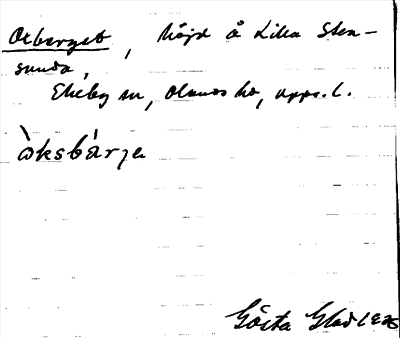 Oxberget, höjd å Lilla Sten-
sunda,
Ekeby sn, Olands hd, Upps. l.
òksbárje
Gösta Glad 1830